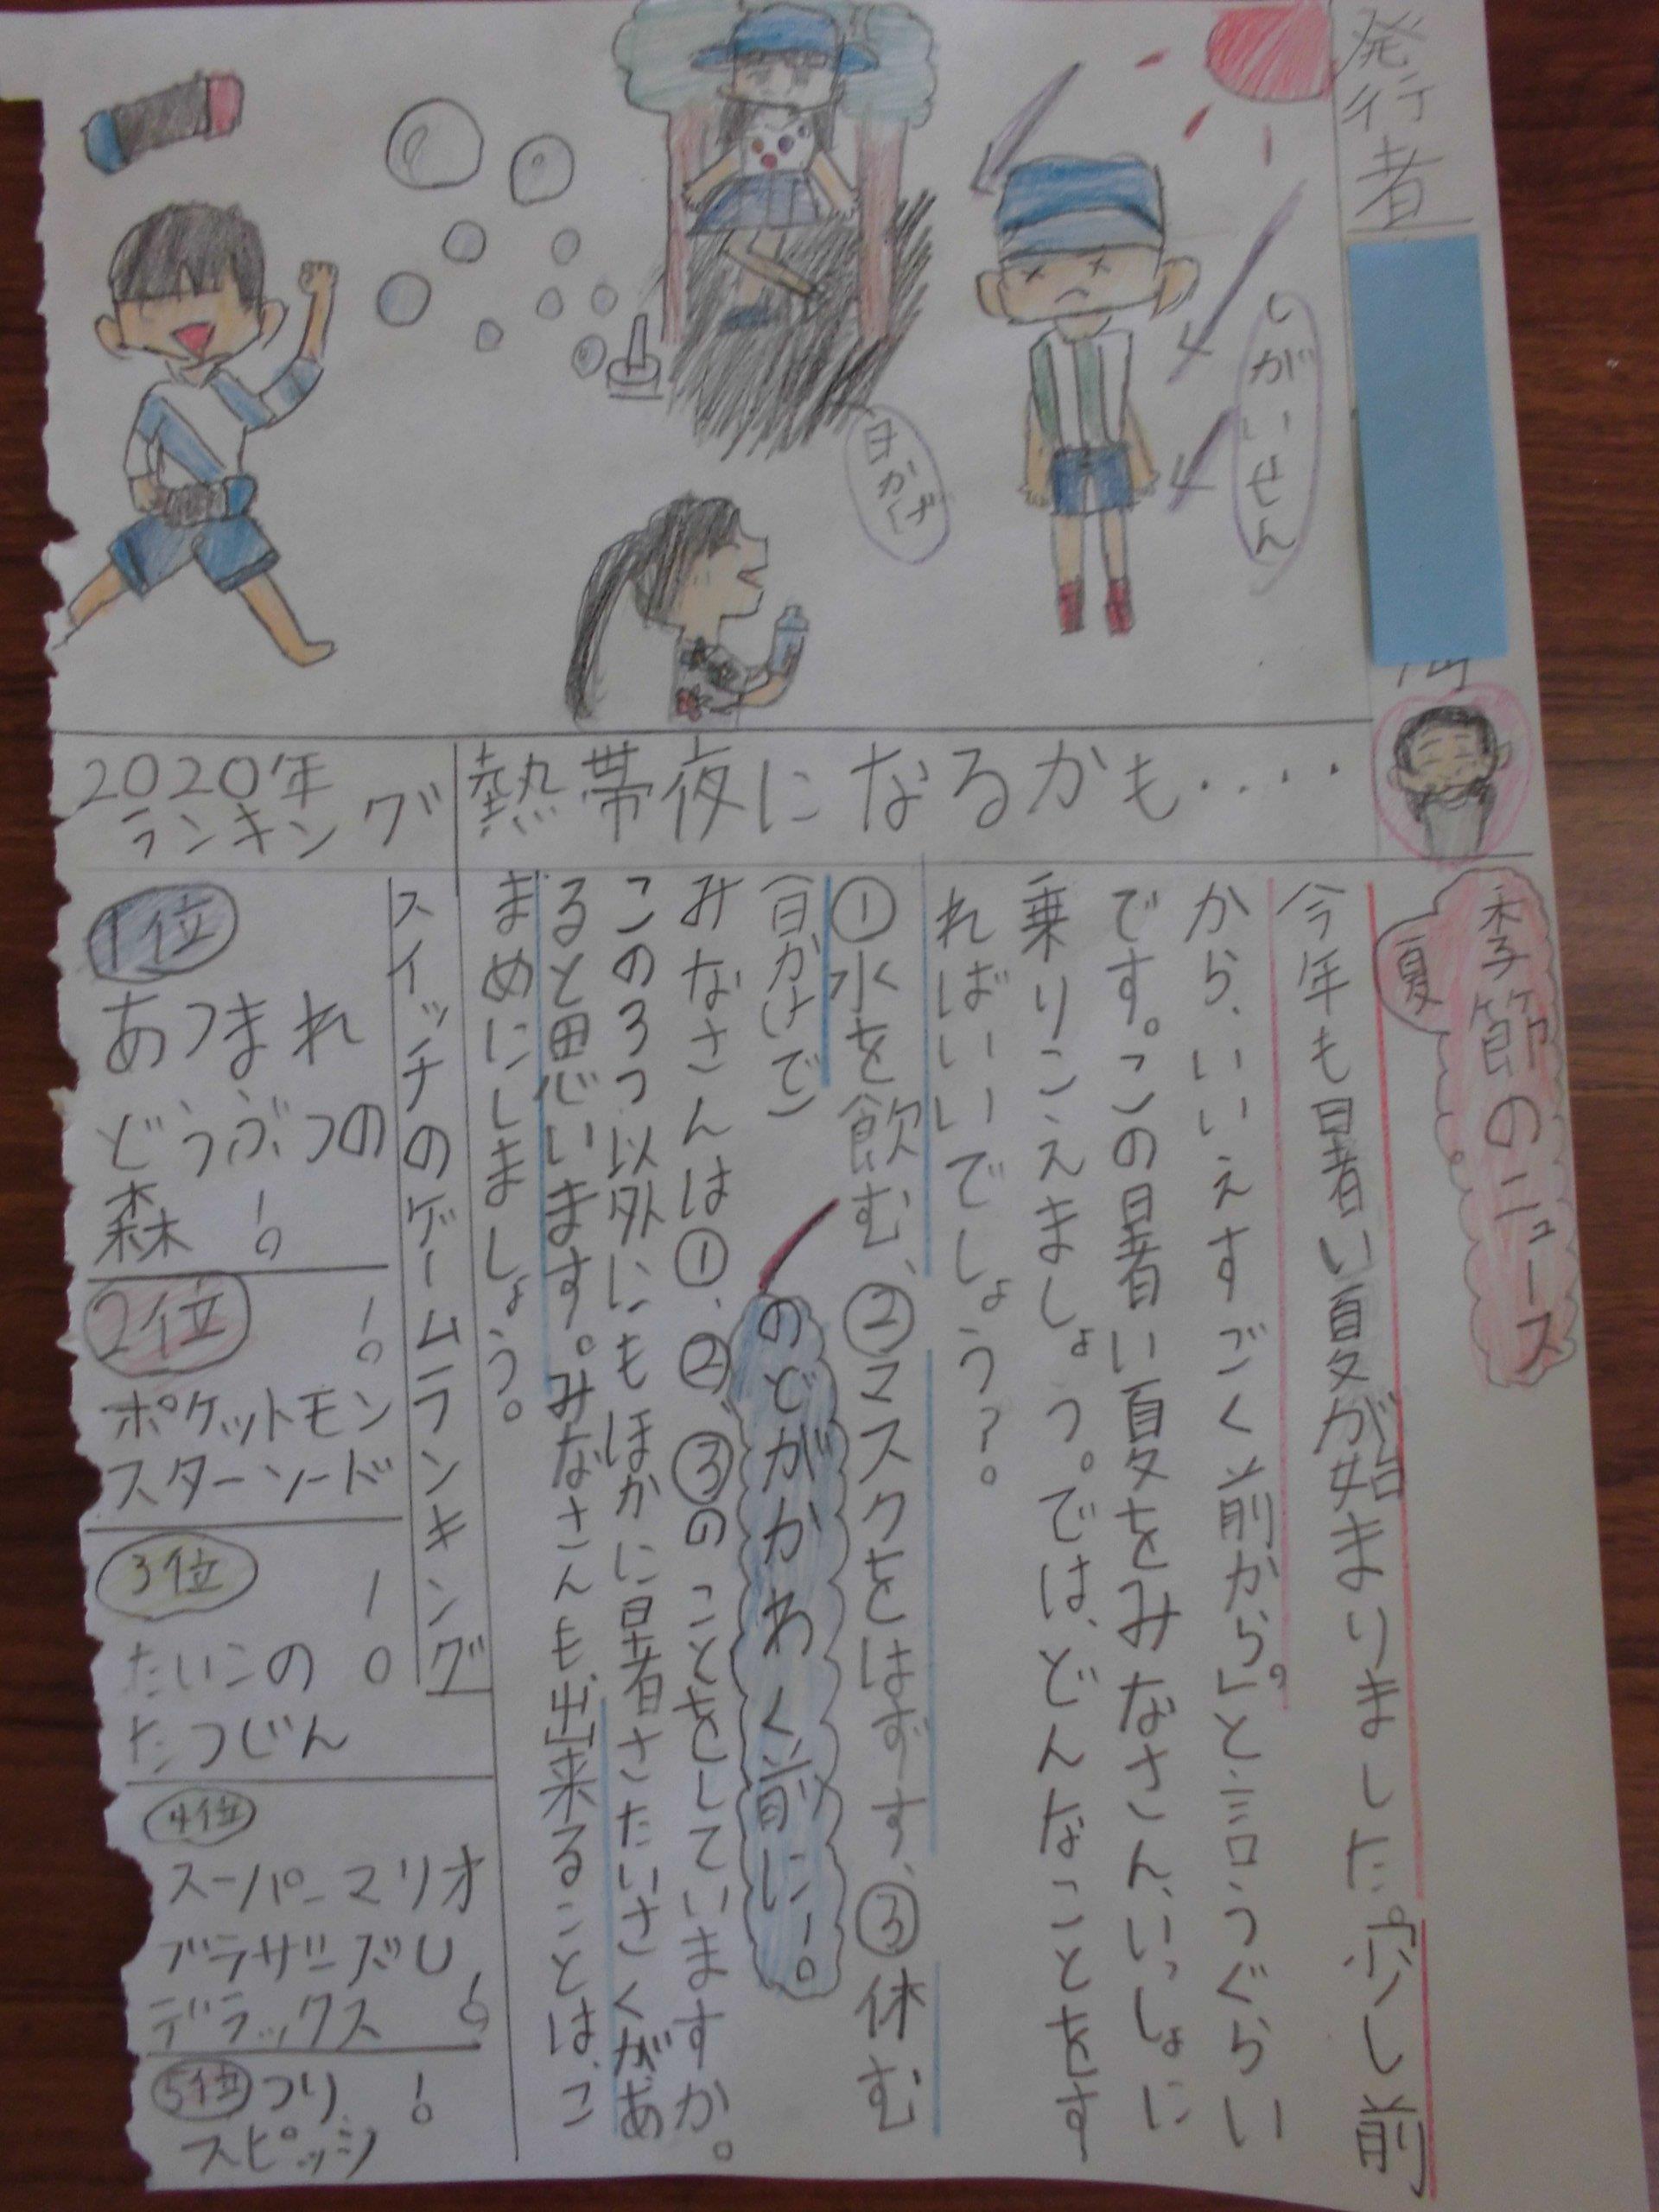 発行者
しがいせん
日かげ
熱帯夜になるかも・・・・
季節のニュース
夏
今年も暑い夏が始まりました。少し前
から、いいえすごく前から。」と言うぐらい
です。この暑い夏をみなさん、いっしょに
乗りこえましょう。では、どんなことをす
ればいいでしょう?。
①水を飲む、②マスクをはずす、③休む
(日かげで)
のどがかわく前に!。
みなさんは①、②、③のことをしていますか。
この3つ以外にもほかに暑さたいさくがあ
ると思います。みなさんも、出来ることは、こ
まめにしましょう。
2020年
ランキング
スイッチのゲームランキング
1位
あつまれ
どうぶつの
森!。
2位
ポケットモン
スターソード!。
3位
たいこの
たつじん!。
4位
スーパーマリオ
ブラザーズU
デラックス!。
5位 つり
スピッシ!。